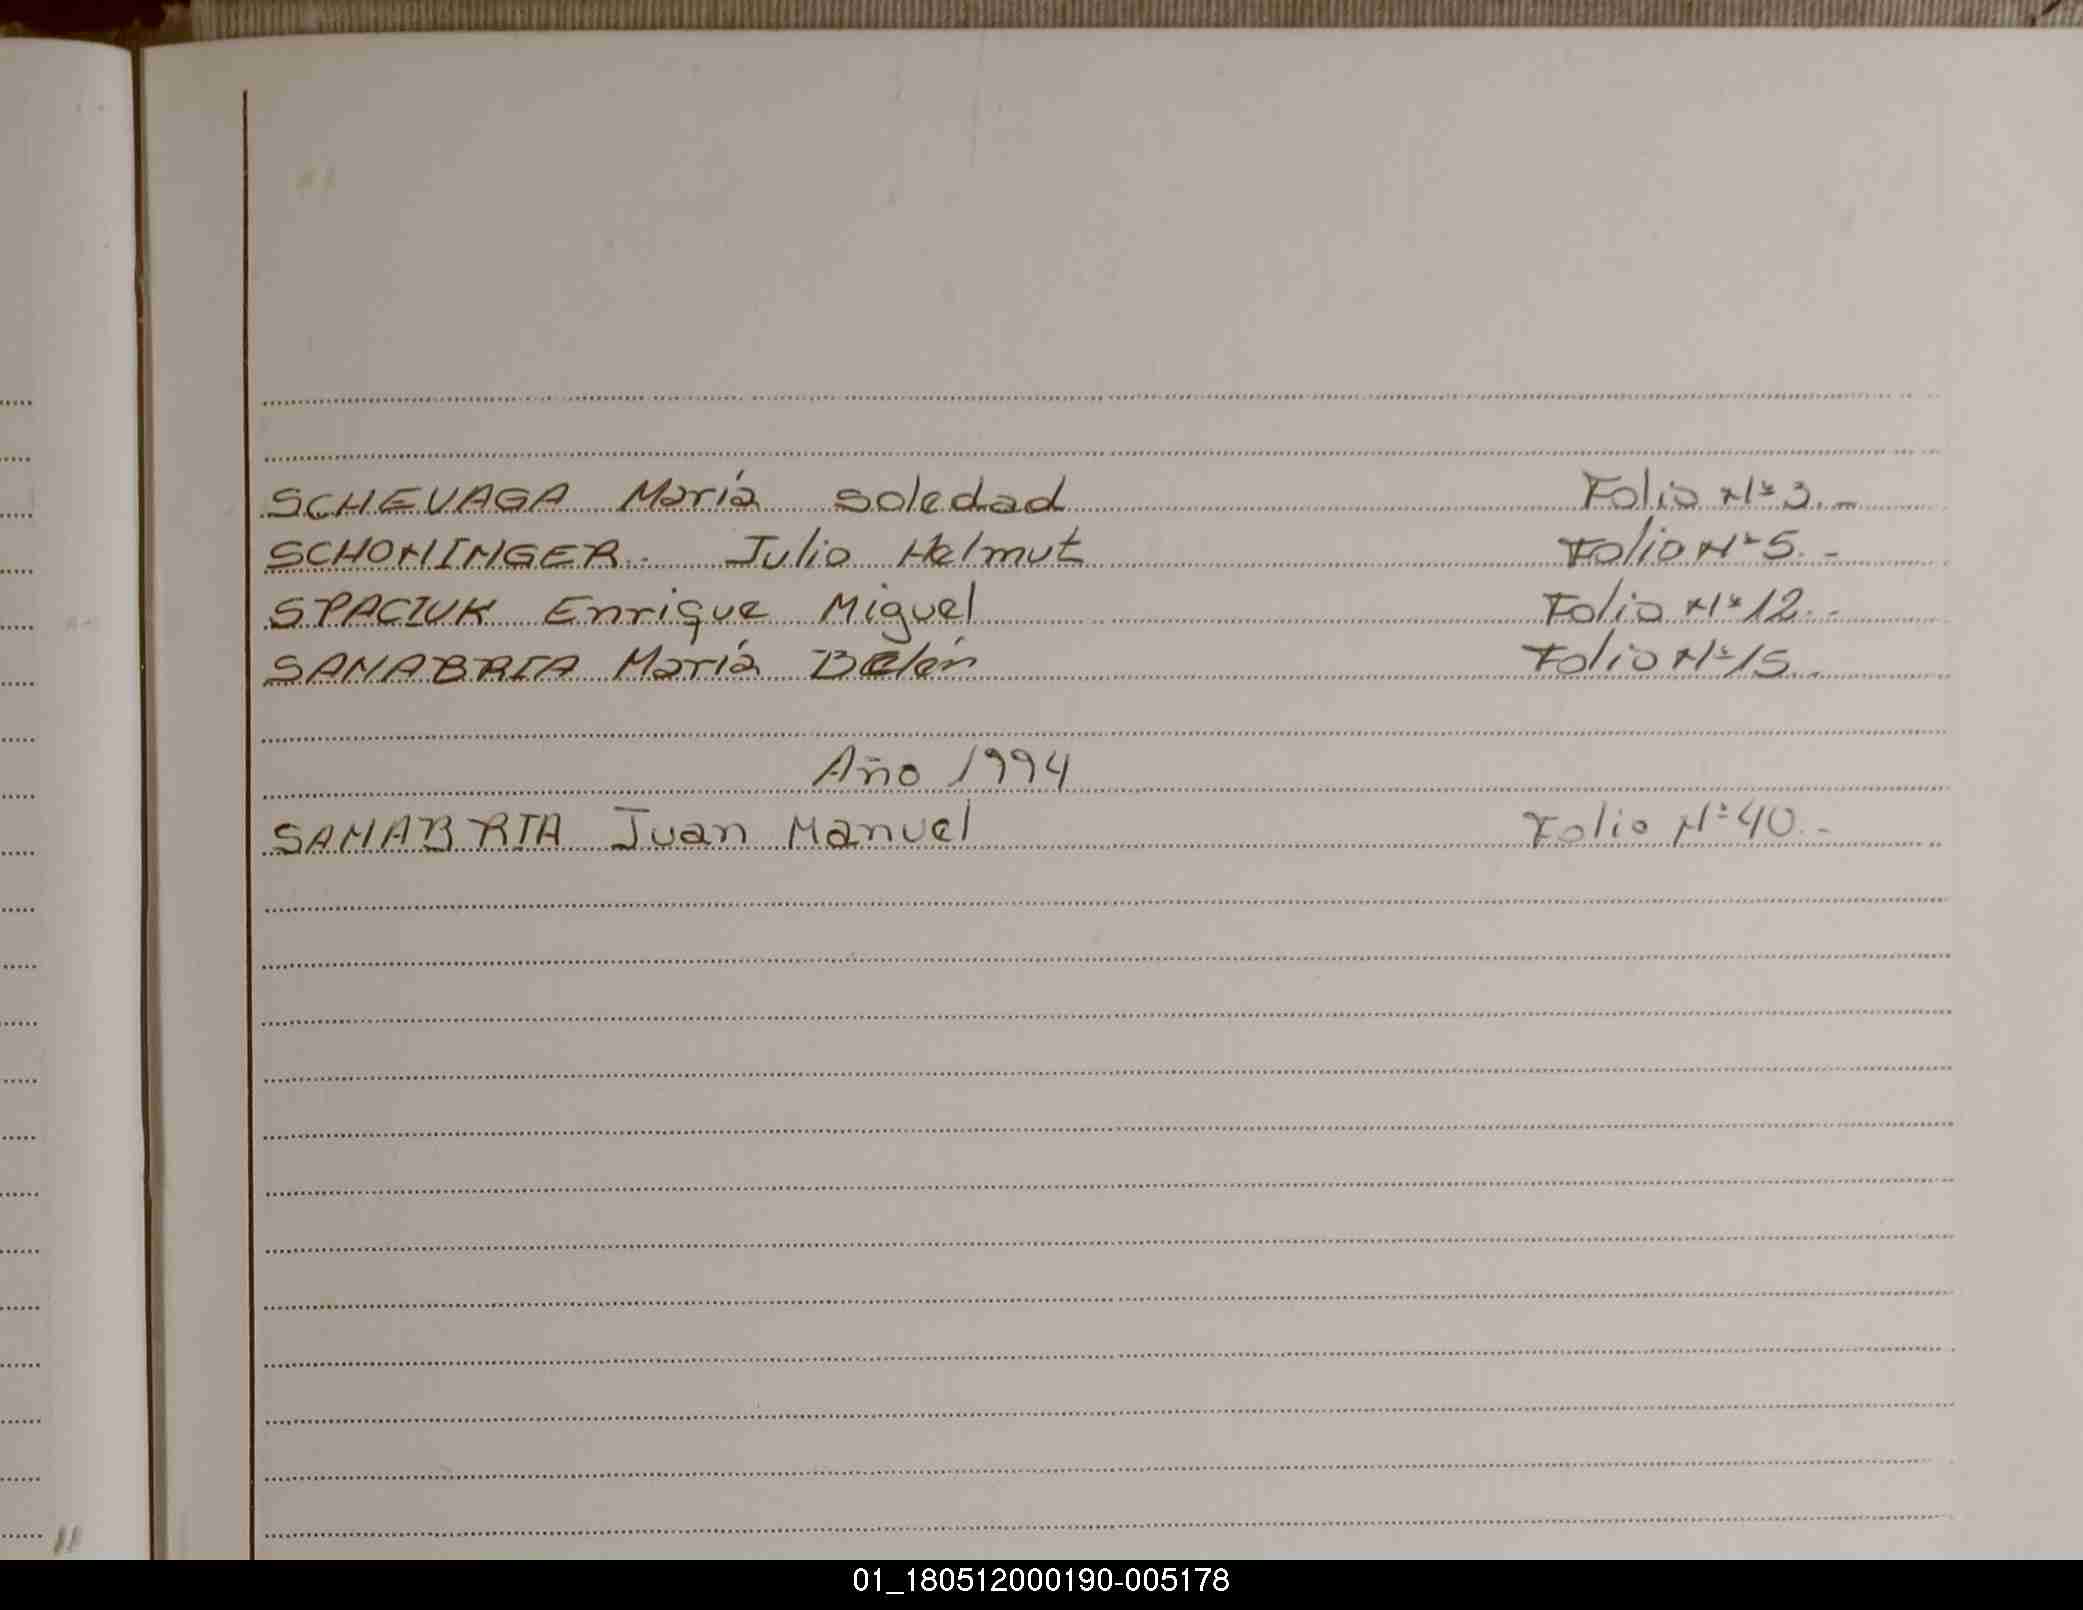 SCHEVAGA María Soledad Folio Nº 3.-
SCHONINGER Julio Helmut Folio Nº 5.-
SPACIUK Enrique Miguel Folio Nº 12.-
SANABRIA María Belén Folio Nº 15.-
Año 1994
SANABRIA Juan Manuel Folio Nº 40.-
01_180512000190-005178